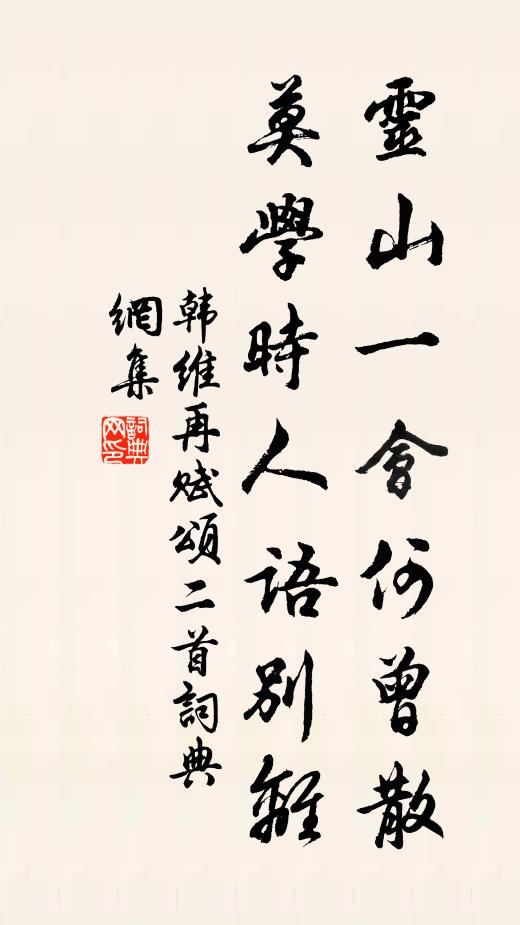 靈山一會何曾散
莫學時人語別離
韩維再赋頌二首詞典
網集
詞典
网印